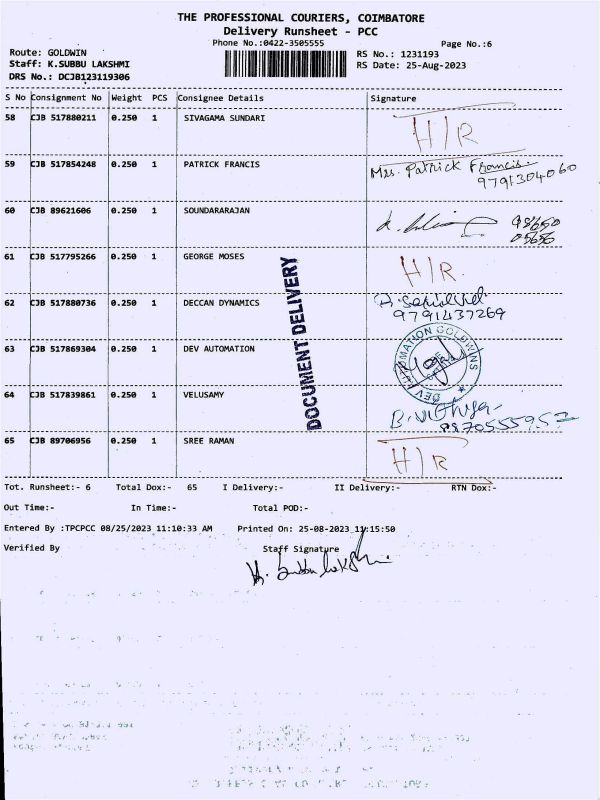 THE PROFESSIONAL COURIERS, COIMBATORE
Delivery Runsheet - PCC
Phone No.:0422-3505555 Page No.:6
Route: GOLDWIN RS No.: 1231193
Staff: K.SUBBU LAKSHMI RS Date: 25-Aug-2023
DRS No.: DCJB123119306
S No Consignment No Weight PCS Consignee Details Signature
58 CJB 517880211 0.250 1 SIVAGAMA SUNDARI H/R
59 CJB 517854248 0.250 1 PATRICK FRANCIS Mrs. Patrick Francis
9791304060
60 CJB 89621606 0.250 1 SOUNDARARAJAN
61 CJB 517795266 0.250 1 GEORGE MOSES H/R.
62 CJB 517880736 0.250 1 DECCAN DYNAMICS
9791437269
63 CJB 517869304 0.250 1 DEV AUTOMATION DEV AUTOMATION GOLDWINS
64 CJB 517839861 0.250 1 VELUSAMY
65 CJB 89706956 0.250 1 SREE RAMAN H/R
DOCUMENT DELIVERY
Tot. Runsheet:- 6 Total Dox:- 65 I Delivery:- II Delivery:- RTN Dox:-
Out Time:- In Time:- Total POD:-
Entered By :TPCPCC 08/25/2023 11:10:33 AM Printed On: 25-08-2023 11:15:50
Verified By Staff Signature
K. Subbu lakshmi